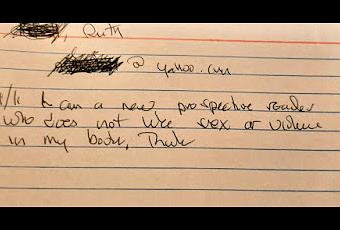 , Ruth
@ yahoo.com
a new prospective reader
who does not like sex or violence
in my books, Thank